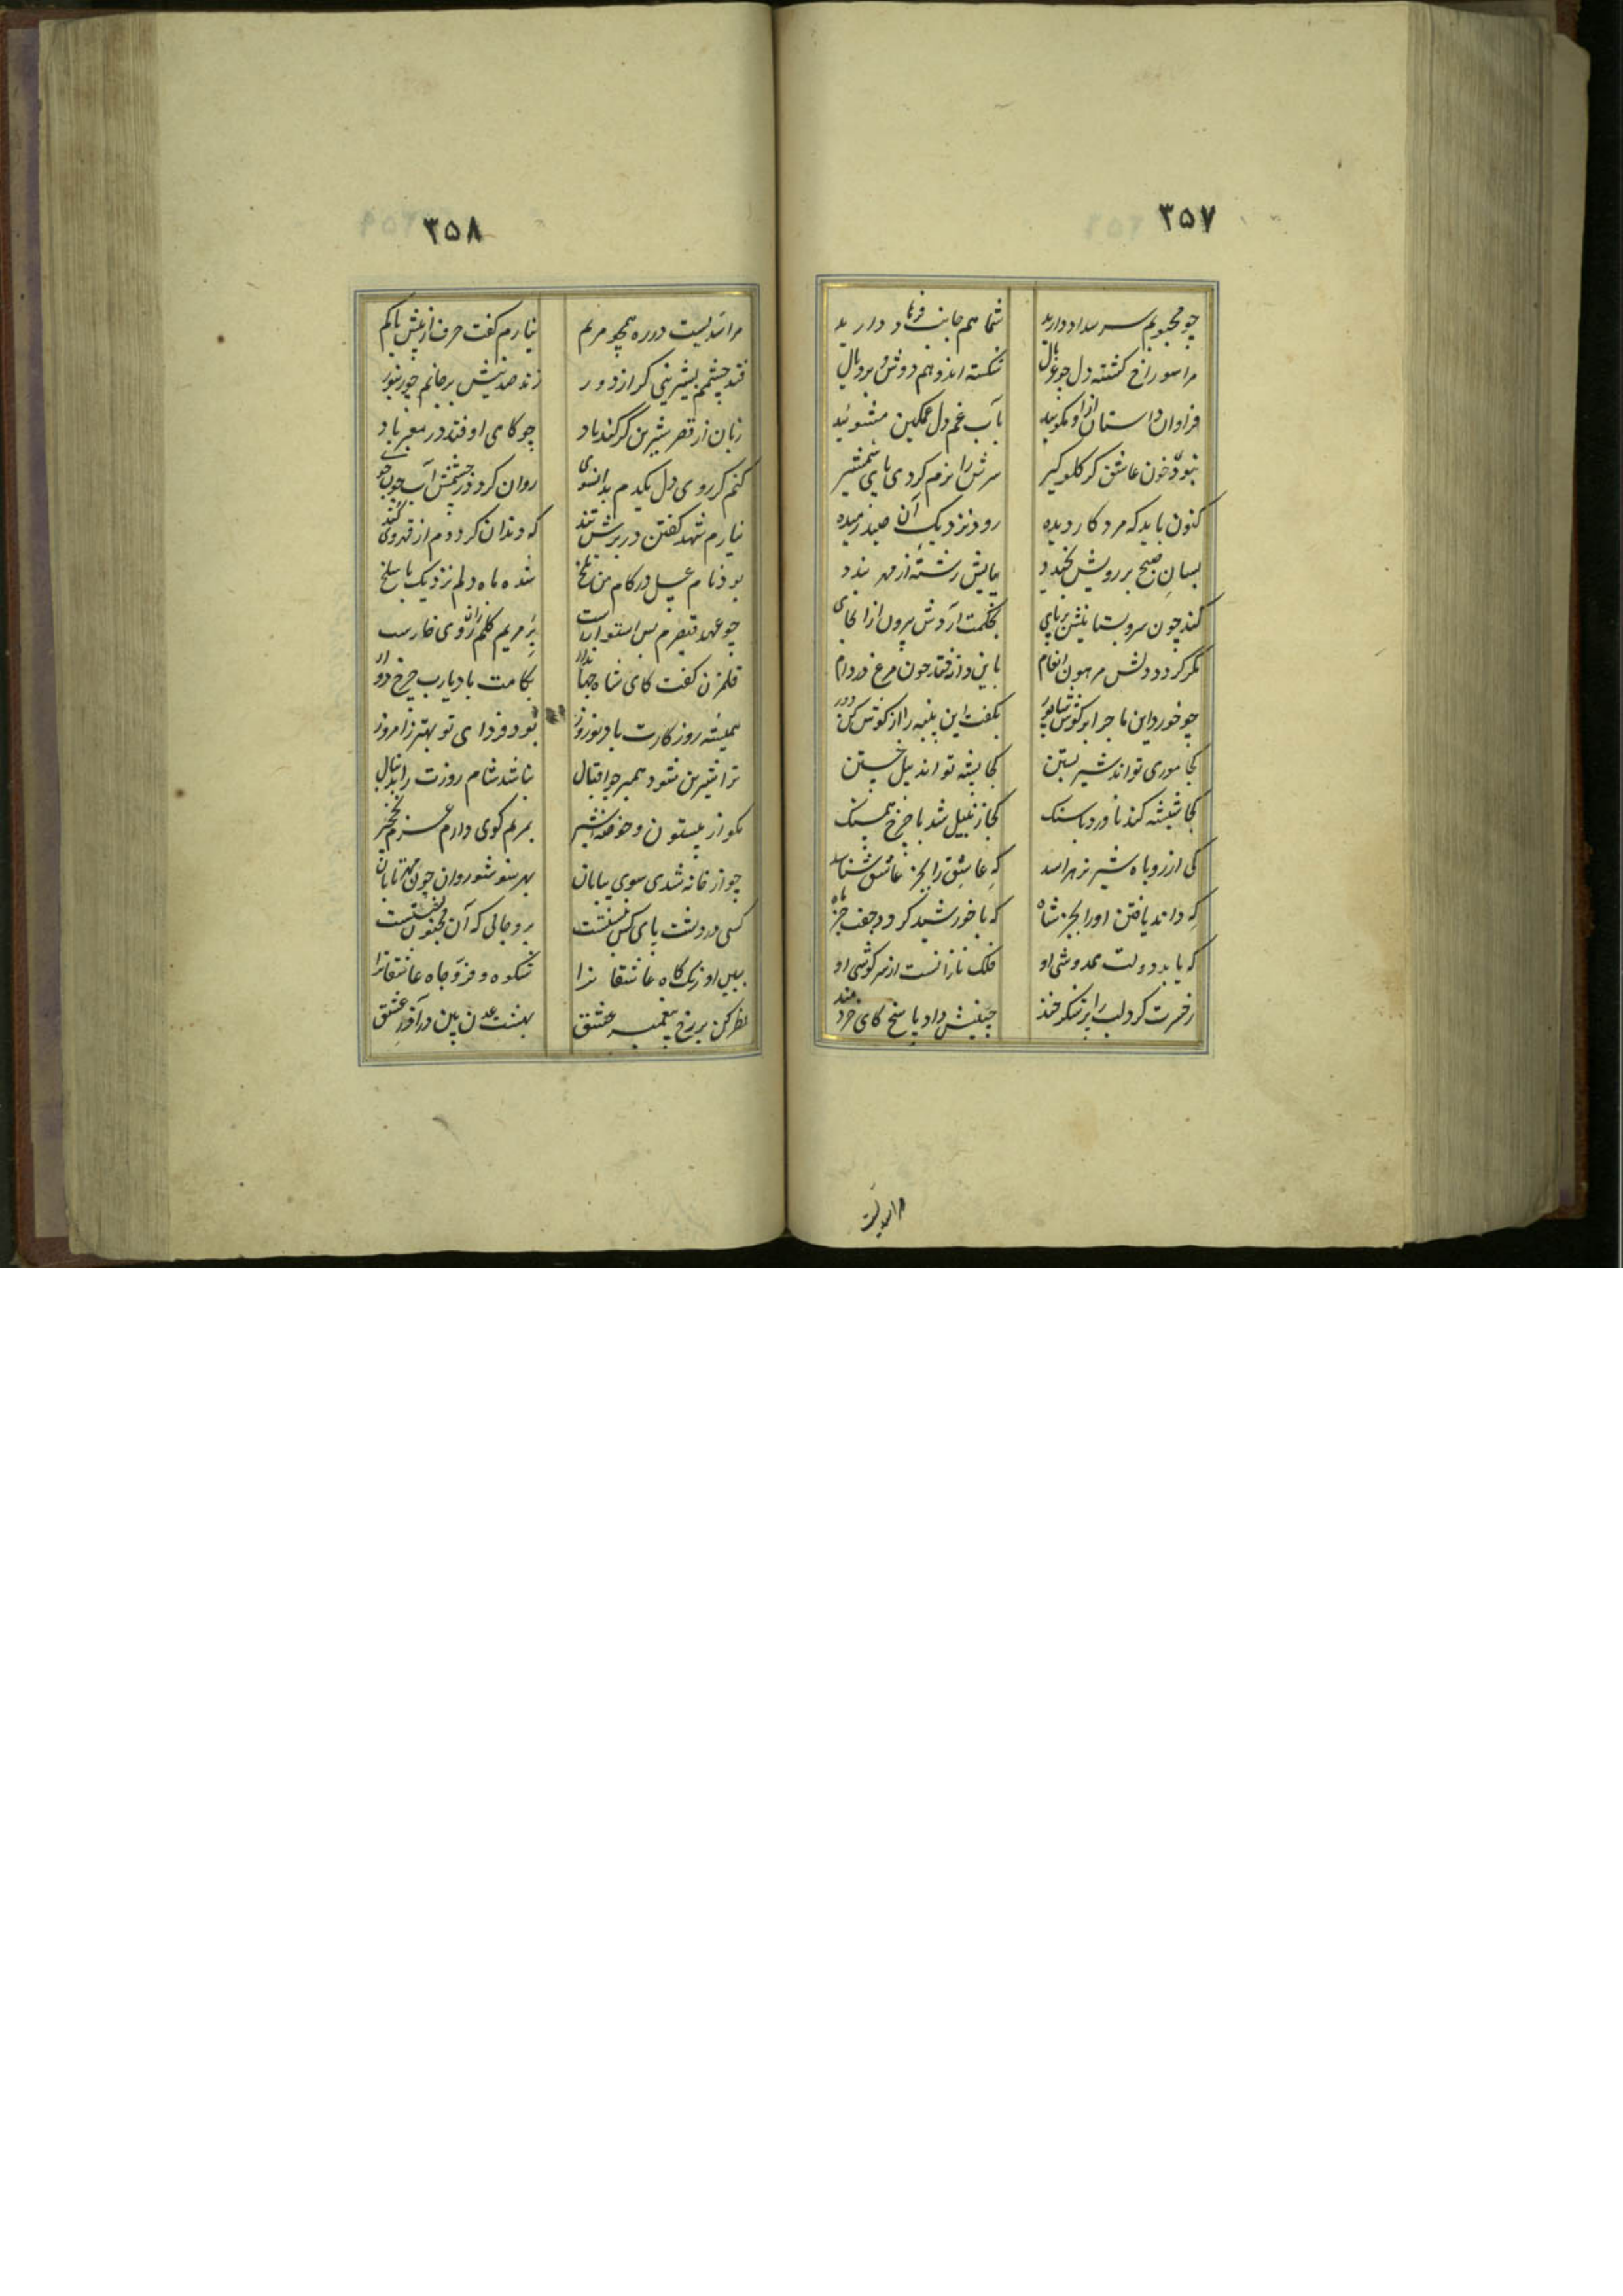 ۳۵۷
چو محبوبم سر بیداد دارید شما هم جانب فرهاد دارید
مرا سوراخ کشته دل چو غربال شکسته اندوهم دوش و بر و بال
فراوان داستان از او مکویید بآب غم دل غمکین مشوئید
نبود خون عاشق کر کلوکیر سرش را نرم کردی پای شمشیر
کنون باید که مرد کار دیده رود نزدیک آن صید رمیده
بسان صبح بر رویش بخندد بپایش رشته از مهر بندد
کند چون سرو بستانیش بر پای بحکمت آردش بیرون از انجای
مکر کردد دلش مرهون انعام باین و از فتد چون مرغ در دام
چو خورد این ماجرا بر کوش شاپور بکفت این پنبه را از کوش کن دور
کجا موری تواند شیر بستن کجا پشه تواند پیل خستن
کجا شیشه کند ناورد با سنک کجا زنبیل شد با چرخ همسنک
کی از روباه شیر نر هراسد که عاشق را بجز عاشق شناسد
که داند یافتن او را بجز شاه که با خورشید کردد جفت جز ماه
که یابد دولت همدوشی او فلک نازانست از سرکوشی او
ز خسرت کرد لب را پر شکر خند چنینش داد پاسخ کای خردمند
مرا سدیست
۳۵۸
مرا سدیست در ره همچو مریم نیارم کفت حرف از بیش یا کم
فتد چشمم بشیرینی کر از دور زند صد نیش بر جانم چو زنبور
زبان از قصر شیرین کر کند یاد چو کاهی اوفتد در معبر باد
کنم کر روی دل یکدم بدانسوی روان کردد ز چشمش آب چون جوی
نیارم شهد کفتن در برش تند که دندان کردد م از قهر وی کند
بود نام عسل در کام من تلخ شده ماه دلم نزدیک با سلخ
چو عهد قیصرم بس استوارست بر مریم کلم زانروی خارست
قلمزن کفت کای شاه جهاندار بکامت باد یارب چرخ دوار
همیشه روز کارت باد نوروز بود فردای تو بهتر ز امروز
ترا شیرین شود همبر چو اقبال نباشد شام روزت را بدنبال
بکو از بیستون و حوضه شیر بمریم کوی دارم عزم نخجیر
چو از خانه شدی سوی بیابان بهر سو شو روان چون مهر تابان
کسی در دشت پای کس نبستت برو جائی که آن مجنون نشستت
ببین اورنک کاه عاشقانرا شکوه و فر و جاه عاشقانرا
نظر کن بر رخ پیغمبر عشق بهشت عدن بین در آذر عشق